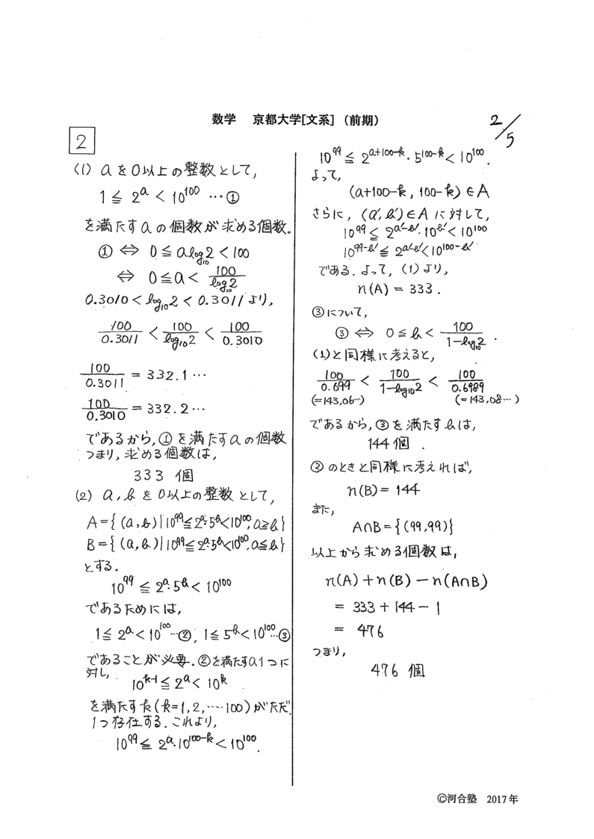 数学　京都大学[文系]　(前期)
2/5
2
(1) aを0以上の整数として,
1≦2^a<10^100 …①
を満たすaの個数が求める個数.
①⇔ 0≦alog₁₀2<100
⇔ 0≦a<100/log₁₀2
0.3010<log₁₀2<0.3011より,
100/0.3011<100/log₁₀2<100/0.3010
100/0.3011=332.1…
100/0.3010=332.2…
であるから,①を満たすaの個数
つまり,求める個数は,
333個
(2) a,bを0以上の整数として,
A={(a,b)|10^99≦2^a・5^b<10^100,a≧b}
B={(a,b)|10^99≦2^a・5^b<10^100,a≦b}
とする.
10^99≦2^a・5^b<10^100
であるためには,
1≦2^a<10^100…②, 1≦5^b<10^100…③
であることが必要.②を満たすa1つに
対し,
10^(k-1)≦2^a<10^k
を満たすk(k=1,2,…,100)がただ
1つ存在する.これより,
10^99≦2^a・10^(100-k)<10^100.
10^99≦2^(a+100-k)・5^(100-k)<10^100.
よって,
(a+100-k, 100-k)∈A
さらに,(a',b')∈Aに対して,
10^99≦2^(a'-b')・10^b'<10^100
10^(99-b')≦2^(a'-b')<10^(100-b')
である.よって,(1)より,
n(A)=333.
③について,
③⇔ 0≦b<100/(1-log₁₀2).
(1)と同様に考えると,
100/0.699<100/(1-log₁₀2)<100/0.6989
(=143,06…) (=143,08…)
であるから,③を満たすbは,
144個.
②のときと同様に考えれば,
n(B)=144
また,
A∩B={(99,99)}
以上から求める個数は,
n(A)+n(B)-n(A∩B)
=333+144-1
=476
つまり,
476個
©河合塾　2017年